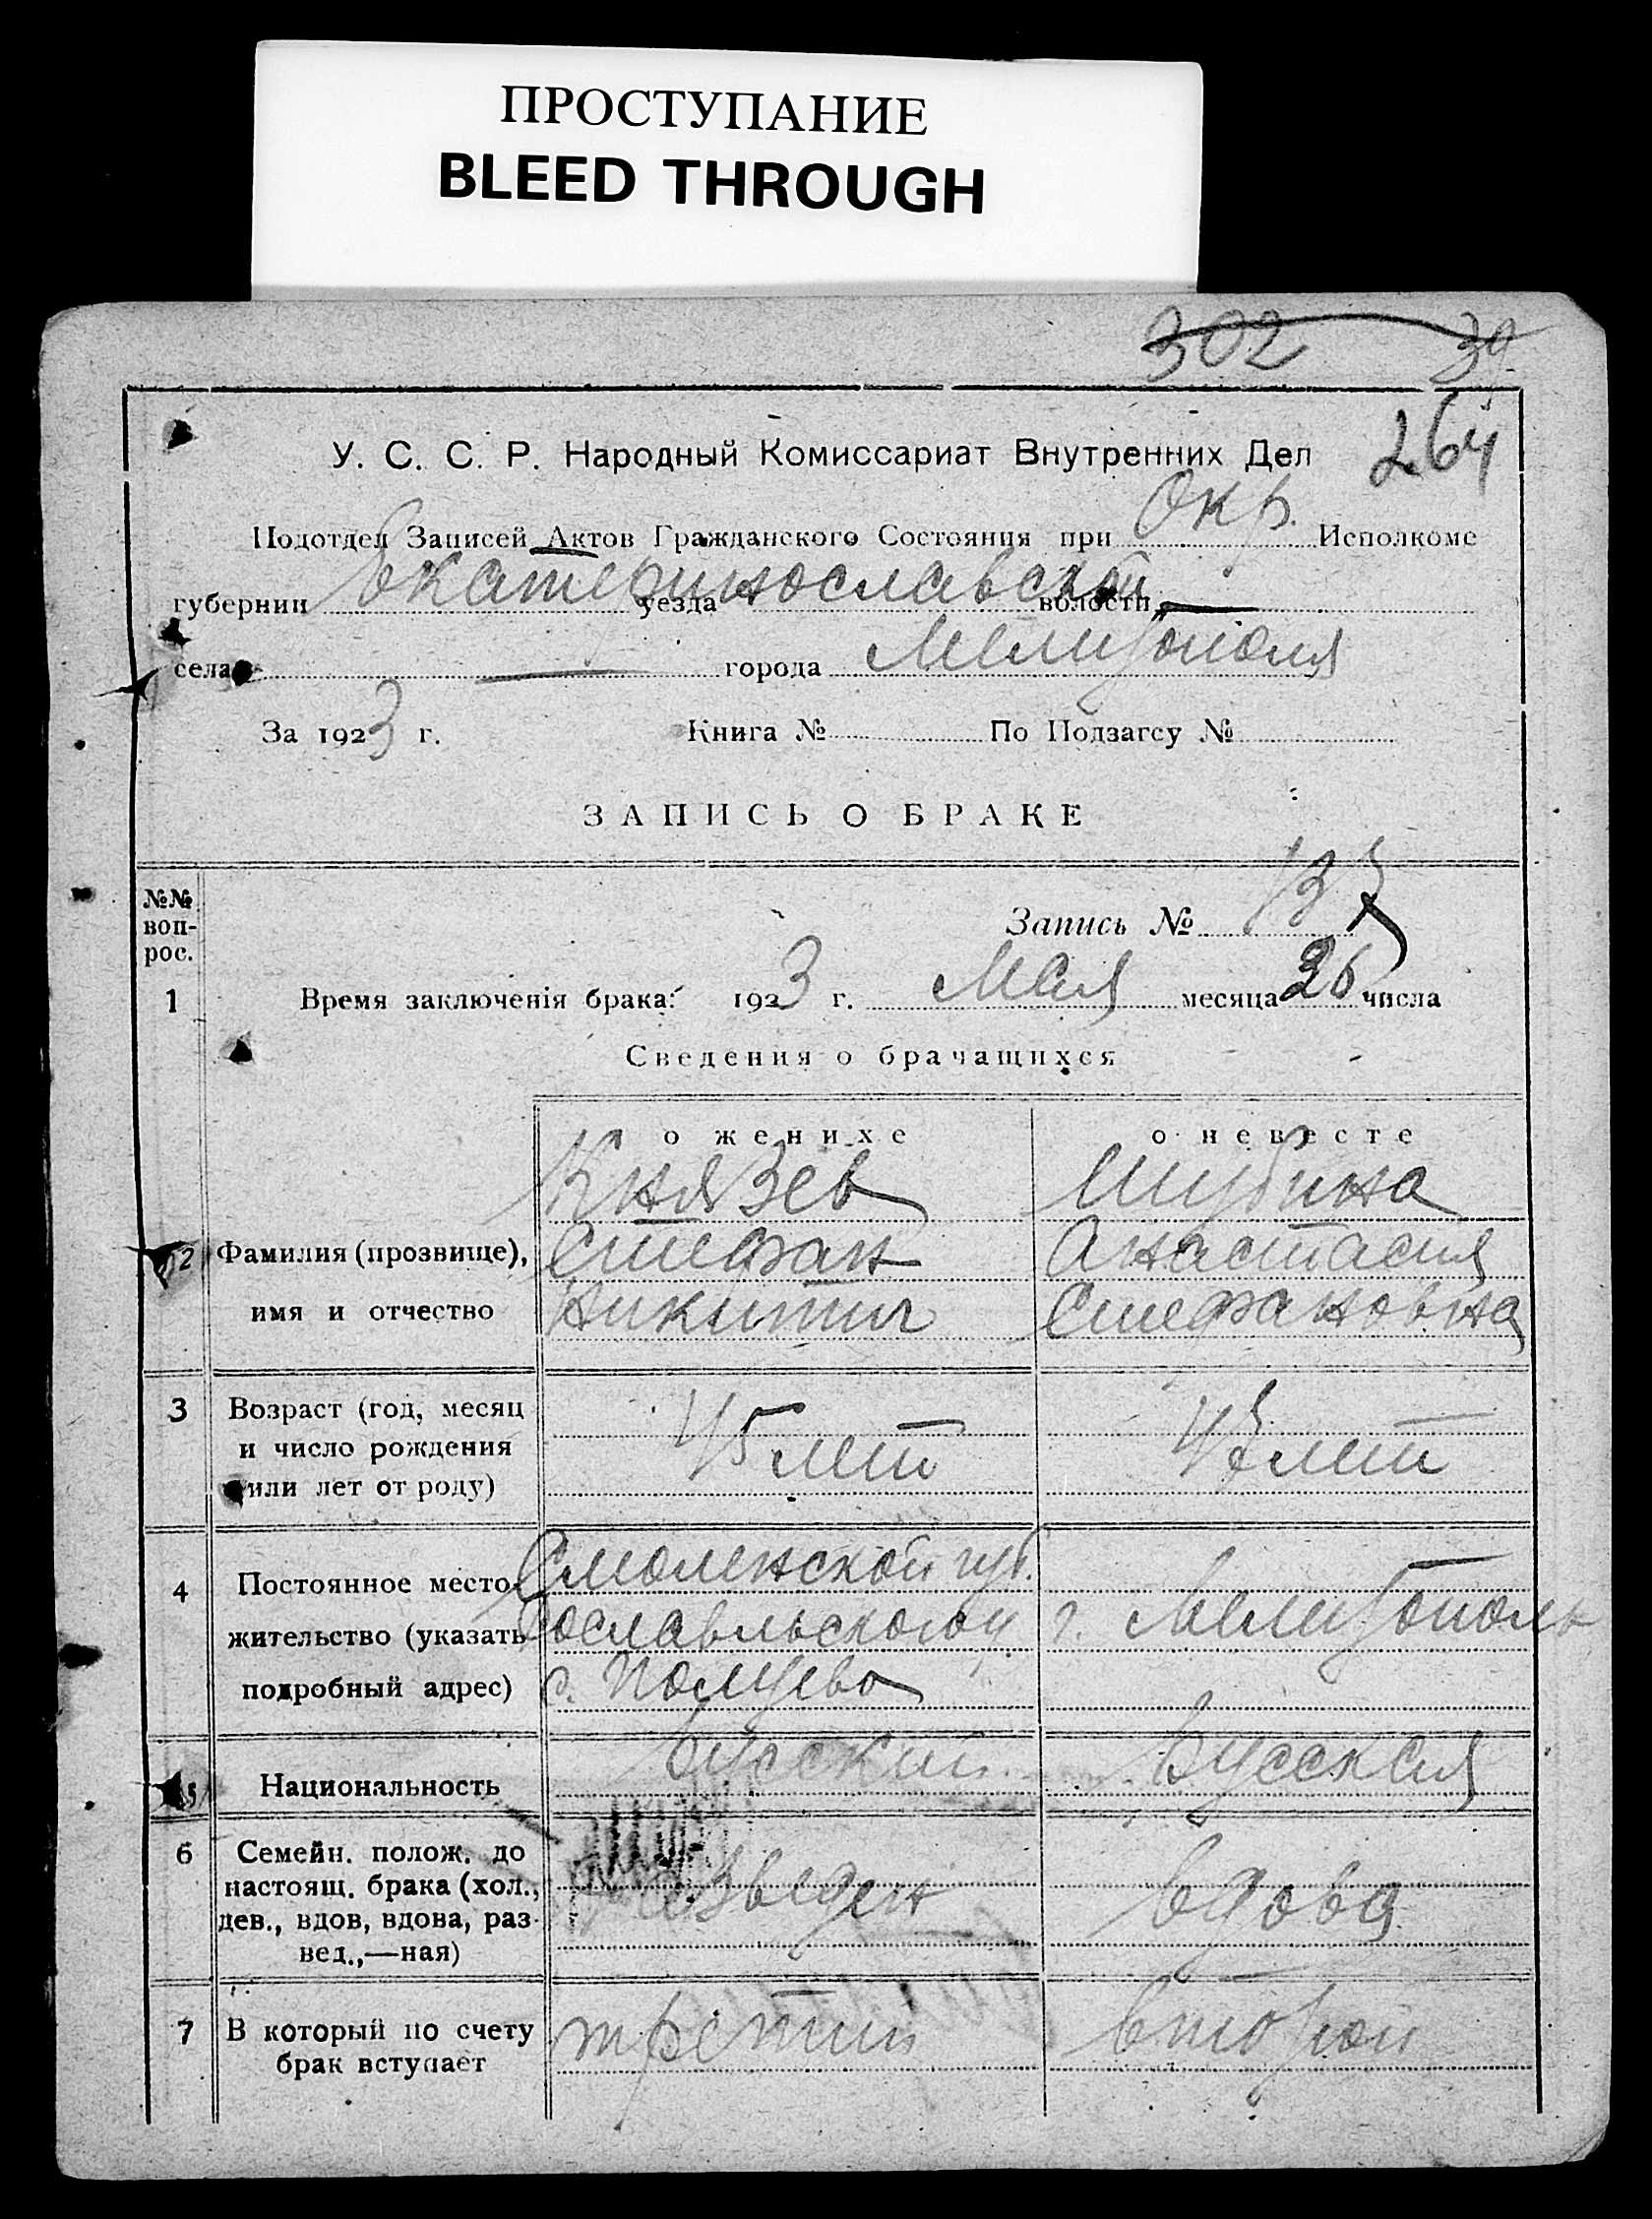 ПРОСТУПАНИЕ
BLEED THROUGH
302 39
264
У. С. С. Р. Народный Комиссариат Внутренних Дел
Подотдел Записей Актов Гражданского Состояния при Окр. Исполкоме
губернии Екатеринославской уезда волости —
села — города Мелитополя
За 1923 г. Книга № По Подзагсу №
ЗАПИСЬ О БРАКЕ
№№ вопрос.
Запись № 137
1 Время заключенія брака: 1923 г. Мая месяца 26 числа
Сведения о брачащихся
о женихе о невесте
Князев Шубина
2 Фамилия (прозвище), Стефан Анастасия
имя и отчество Никитич Стефановна
3 Возраст (год, месяц
и число рождения 45 лет 47 лет
или лет от роду)
4 Постоянное место- Смоленской губ.
жительство (указать Рославльского у г. Мелитополь
подробный адрес)
5 Национальность Русский Русская
6 Семейн. полож. до
настоящ. брака (хол., Разведен Вдова
дев., вдов, вдова, раз-
вед.,—ная)
7 В который по счету третий второй
брак вступает